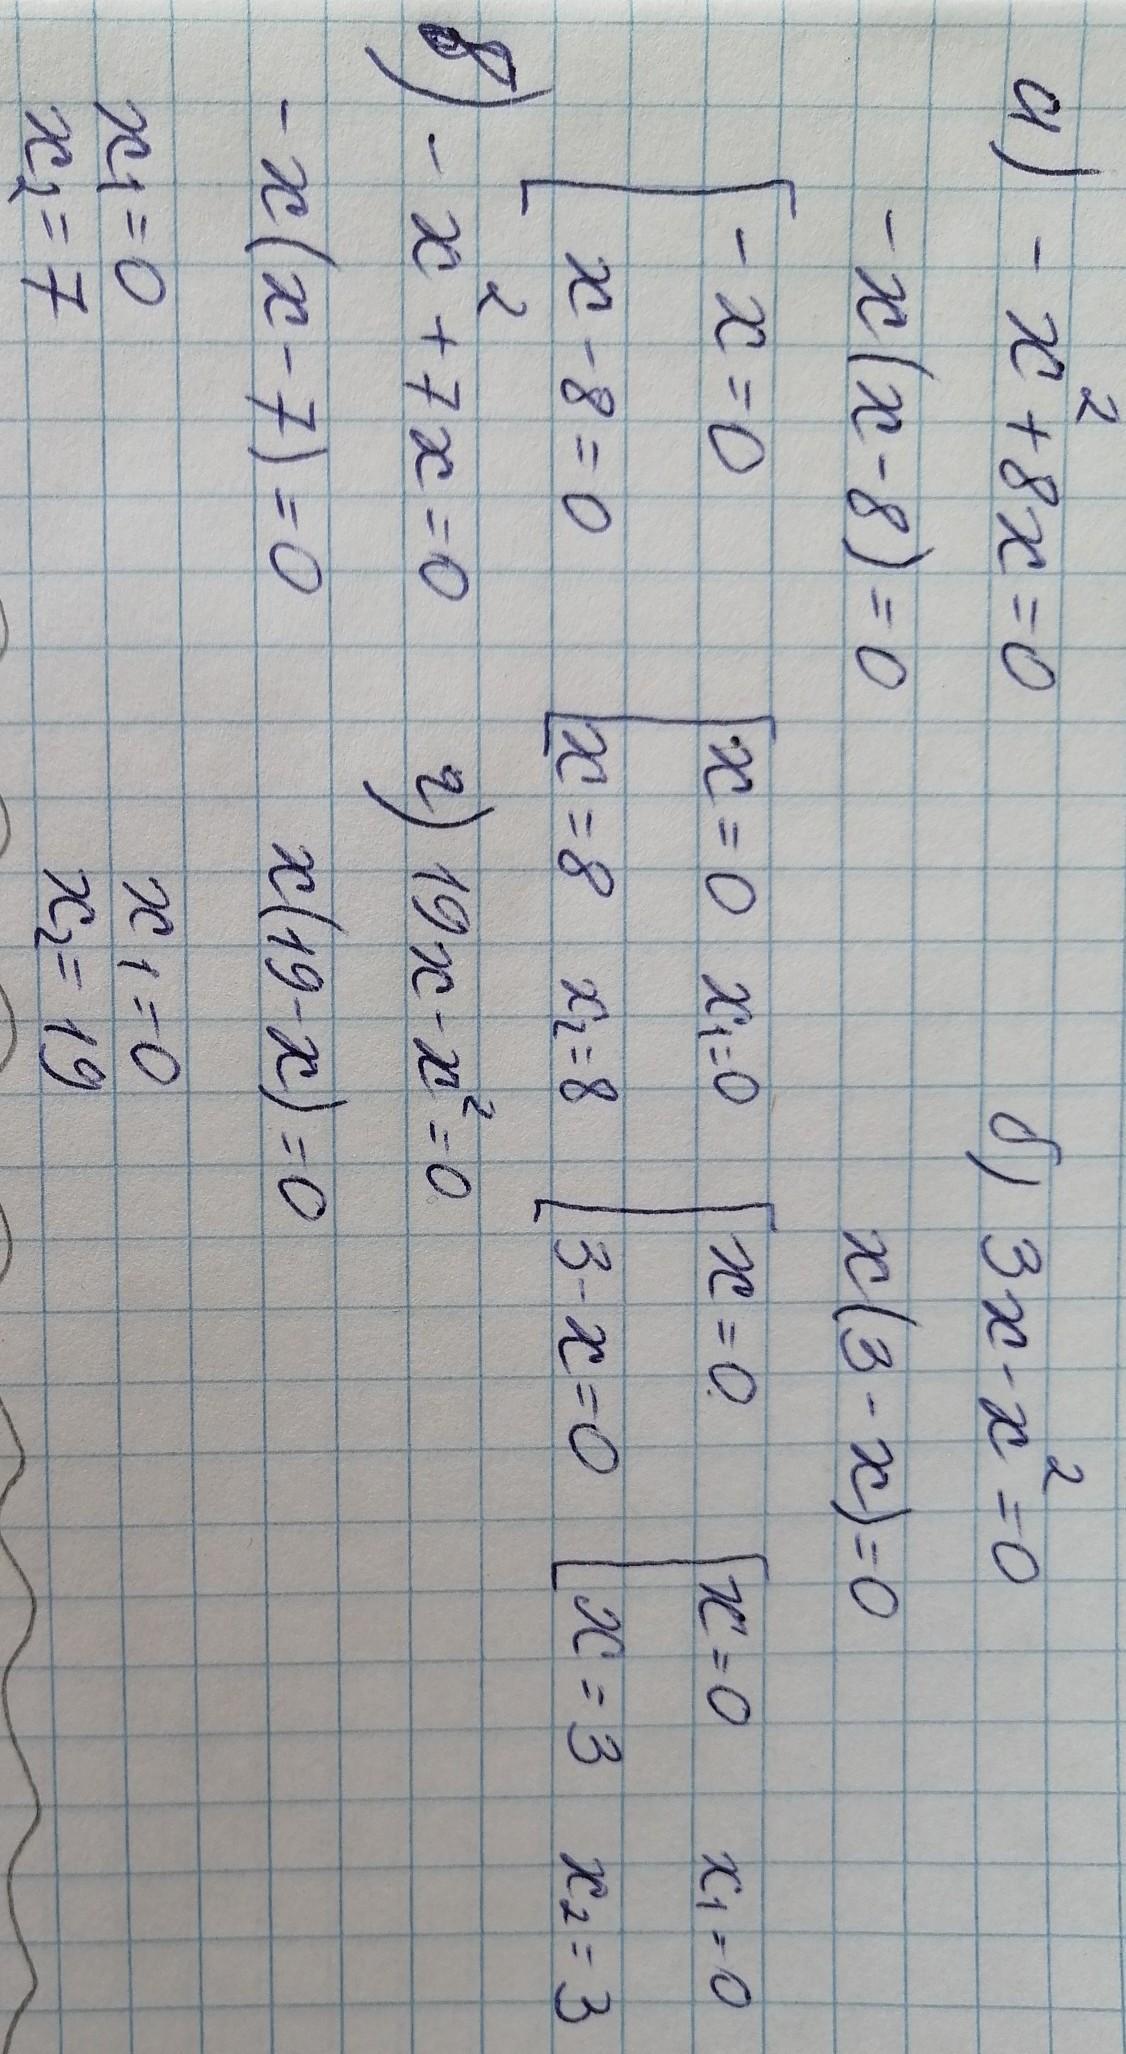 а) - x² + 8x = 0
- x(x - 8) = 0
[ - x = 0
x - 8 = 0
[ x = 0
x = 8
x₁ = 0
x₂ = 8
б) 3x - x² = 0
x(3 - x) = 0
[ x = 0
3 - x = 0
[ x = 0
x = 3
x₁ = 0
x₂ = 3
в) - x² + 7x = 0
- x(x - 7) = 0
x₁ = 0
x₂ = 7
г) 19x - x² = 0
x(19 - x) = 0
x₁ = 0
x₂ = 19